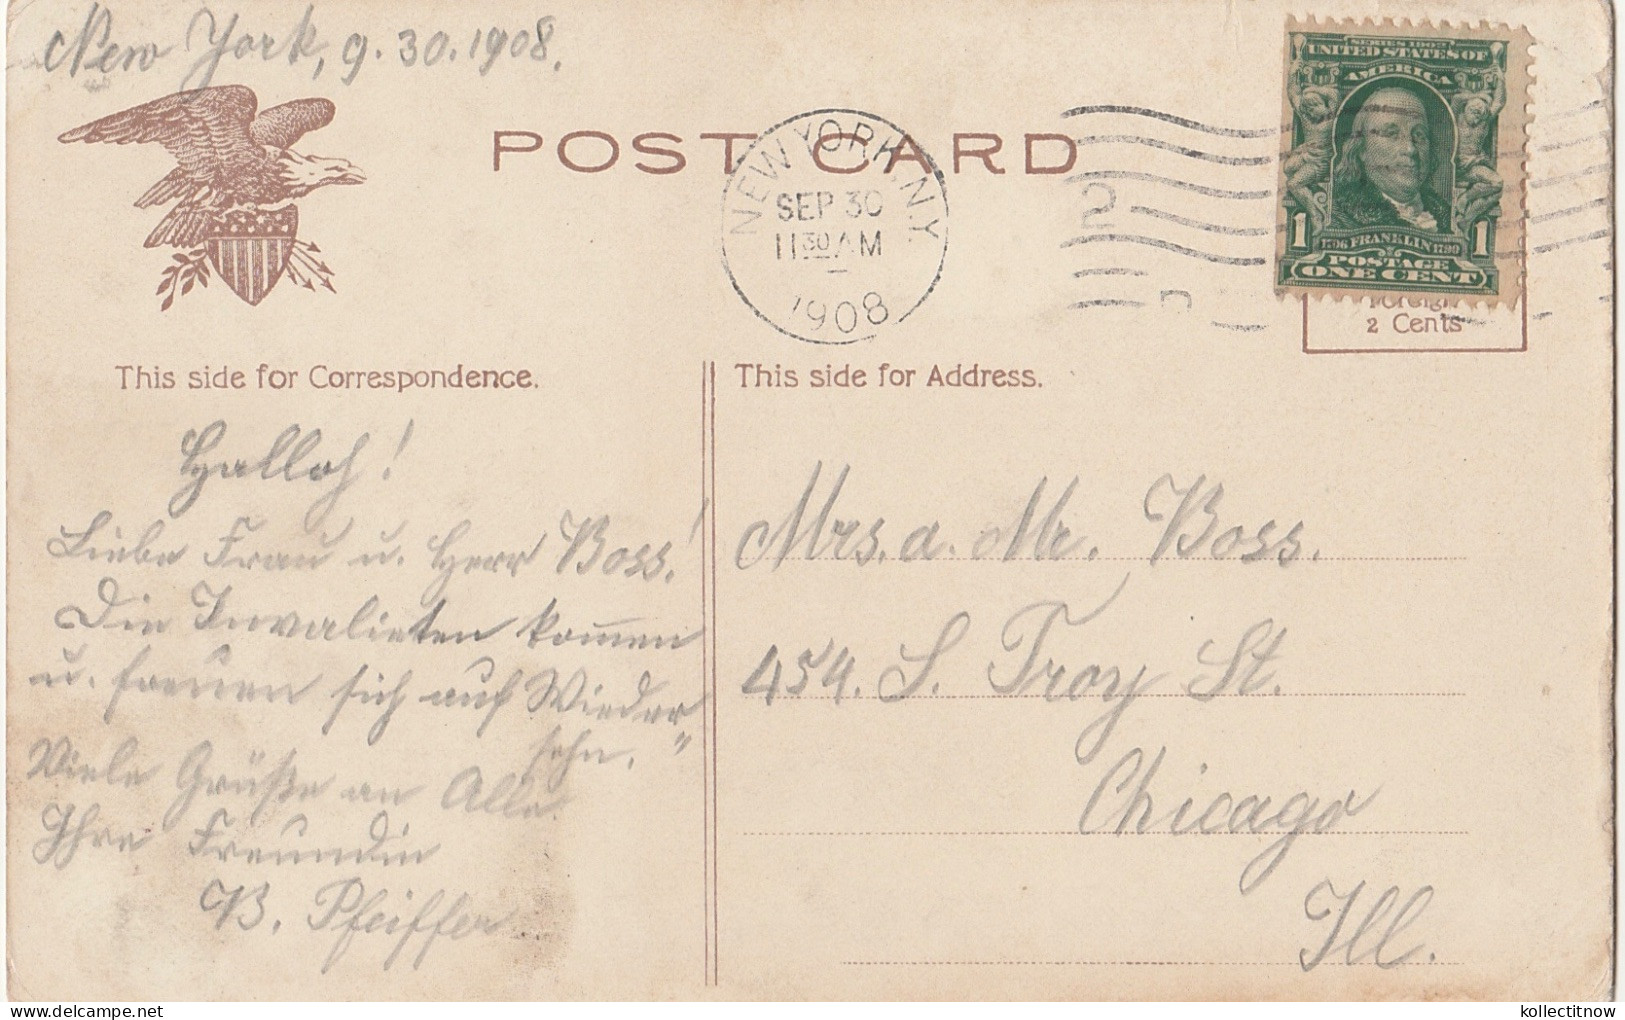 New York, 9. 30. 1908.
POST CARD
NEW YORK, N.Y.
SEP 30
11 30 AM
1908
2
SERIES 1902
UNITED STATES OF
AMERICA
1 1
1706 FRANKLIN 1790
POSTAGE
ONE CENT
Foreign
2 Cents
This side for Correspondence.
Halloh!
Liebe Frau u. Herr Boss!
Die Invalieten kom̄en
u. freuen sich auf Wieder
sehn."
Viele Grüße an Alle.
Ihre Freundin
B. Pfeiffer
This side for Address.
Mrs. a. Mr. Boss.
454. S. Troy St.
Chicago
Ill.
kollectitnow